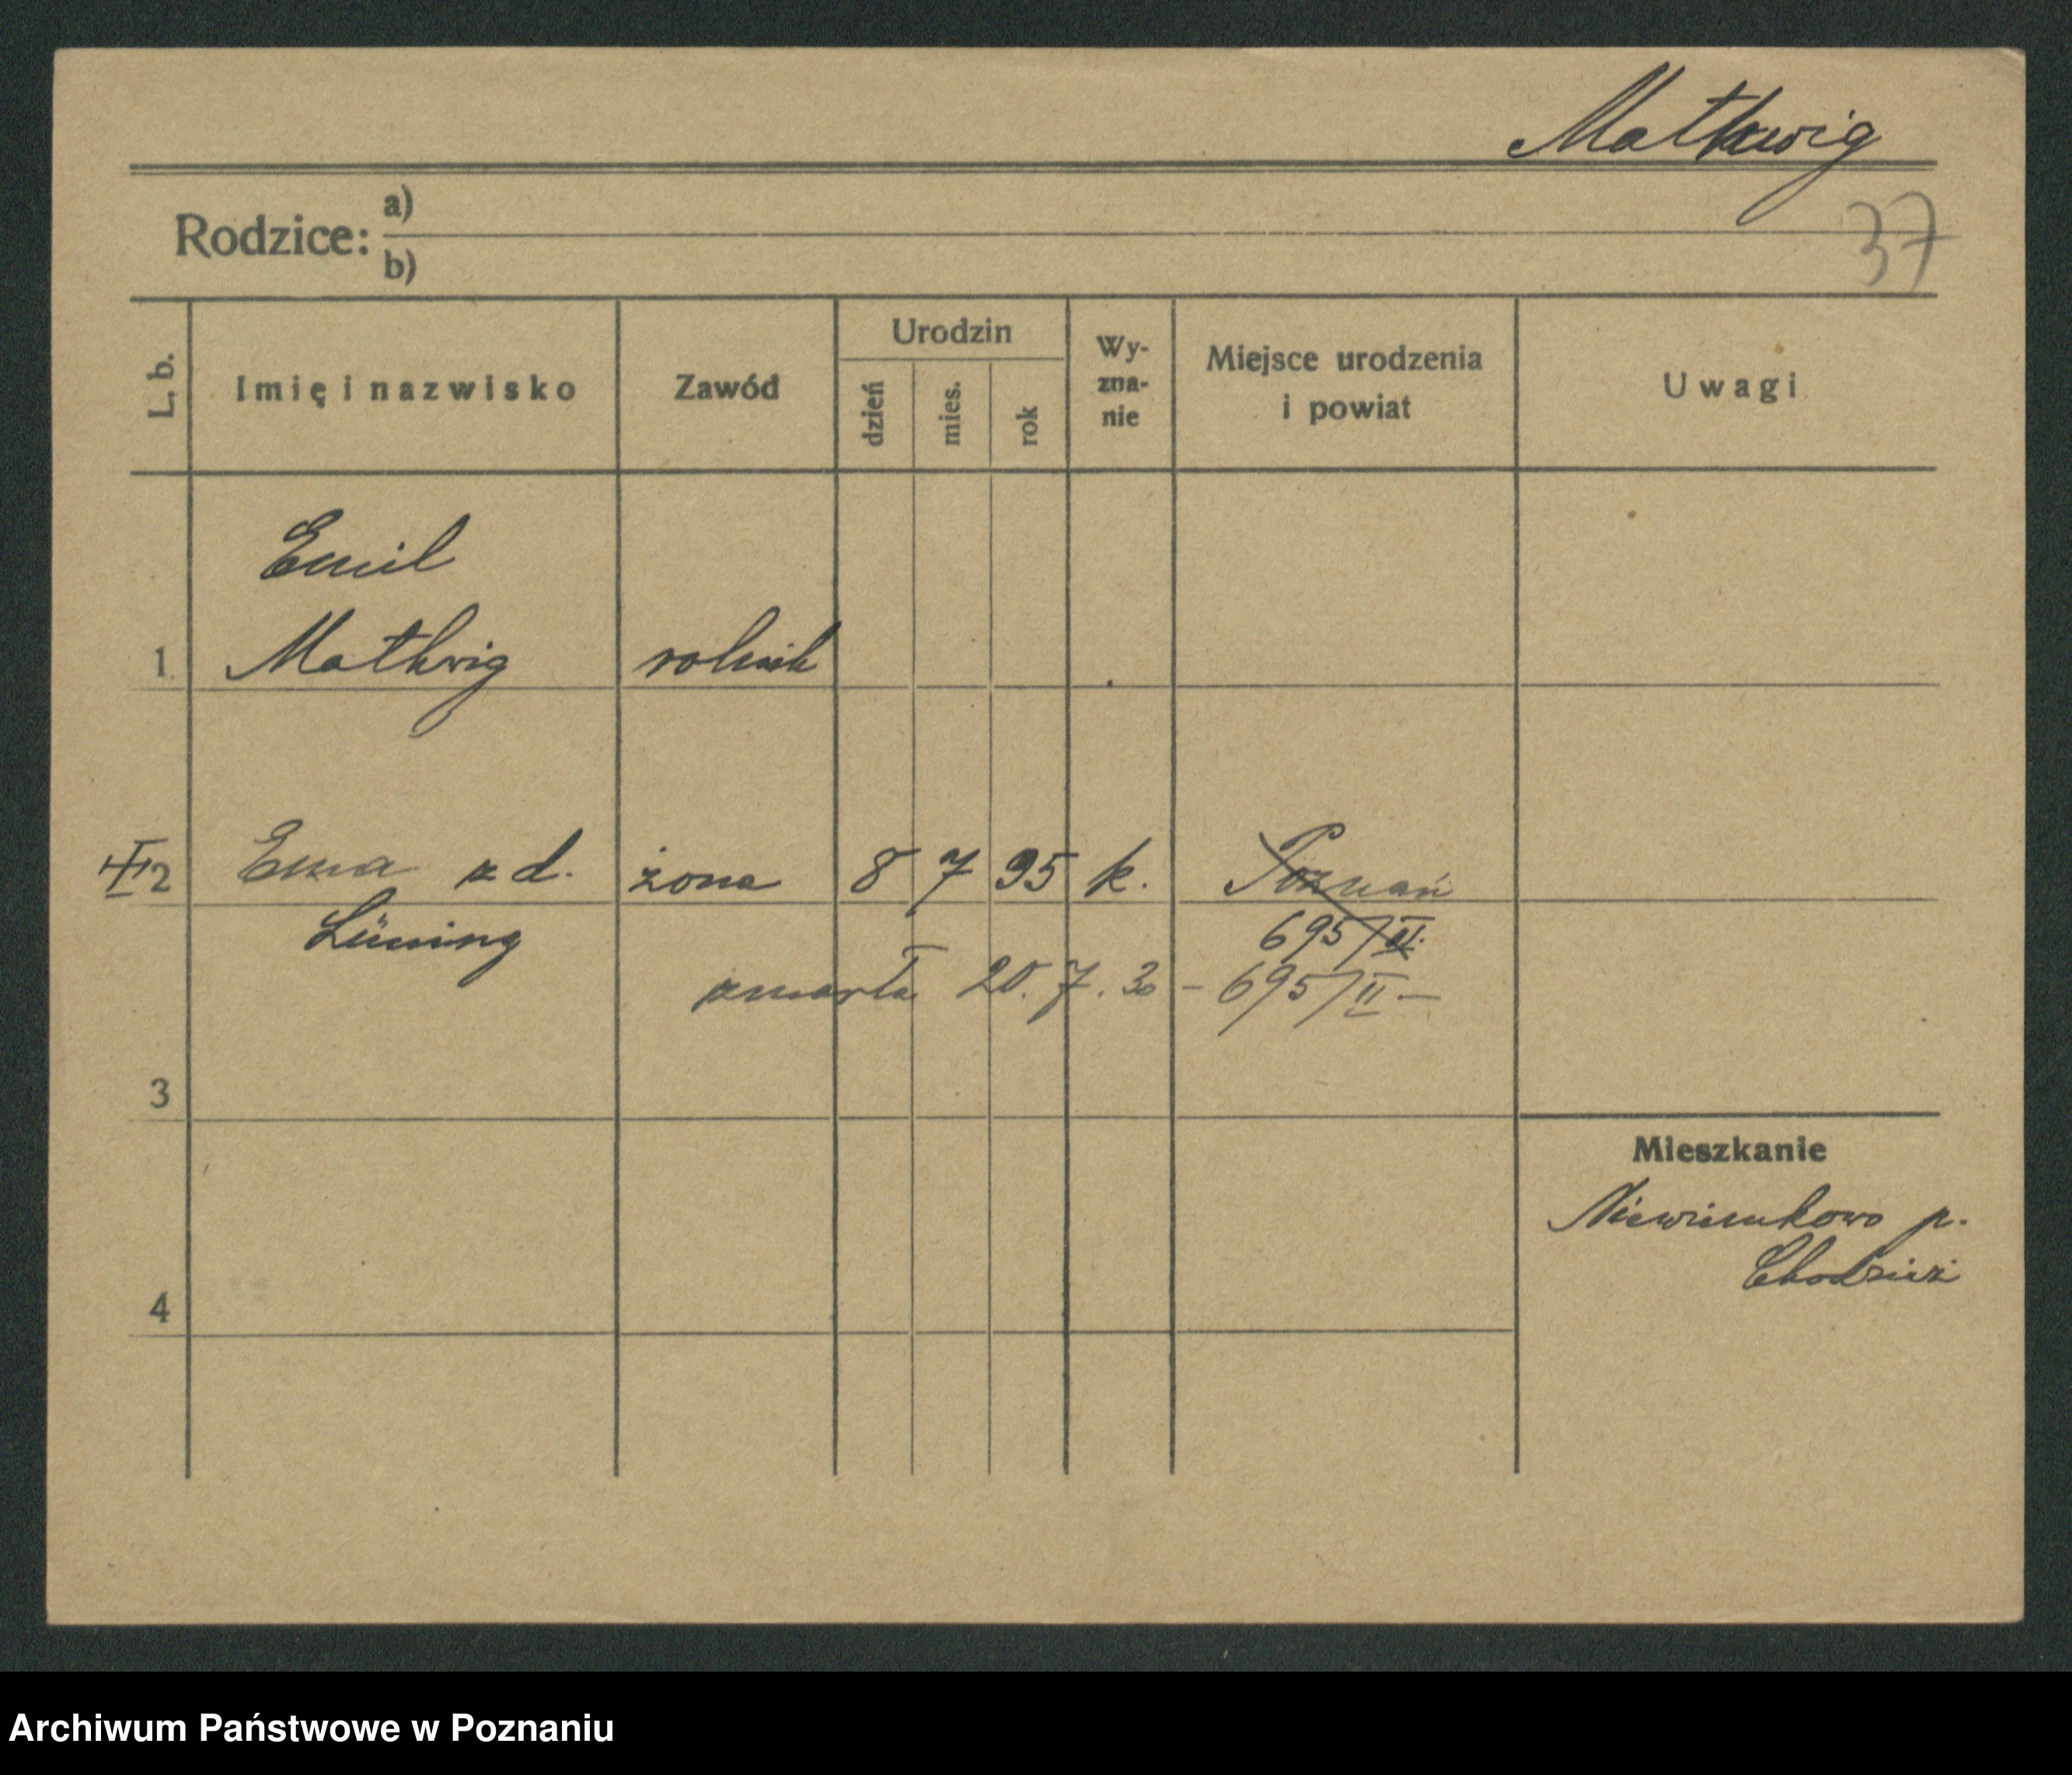 Mathwig
37
Rodzice: a)
b)
L. b. Imię i nazwisko Zawód Urodzin dzień mies. rok Wyznanie Miejsce urodzenia i powiat Uwagi
Emil
1 Mathwig rolnik
2 Ema z d. żona 8 7 95 k. Poznań
Lüning 695/II.
zmarła 20. 7. 30 - 695/II -
3
Mieszkanie
p.
Chodzież
4
Archiwum Państwowe w Poznaniu